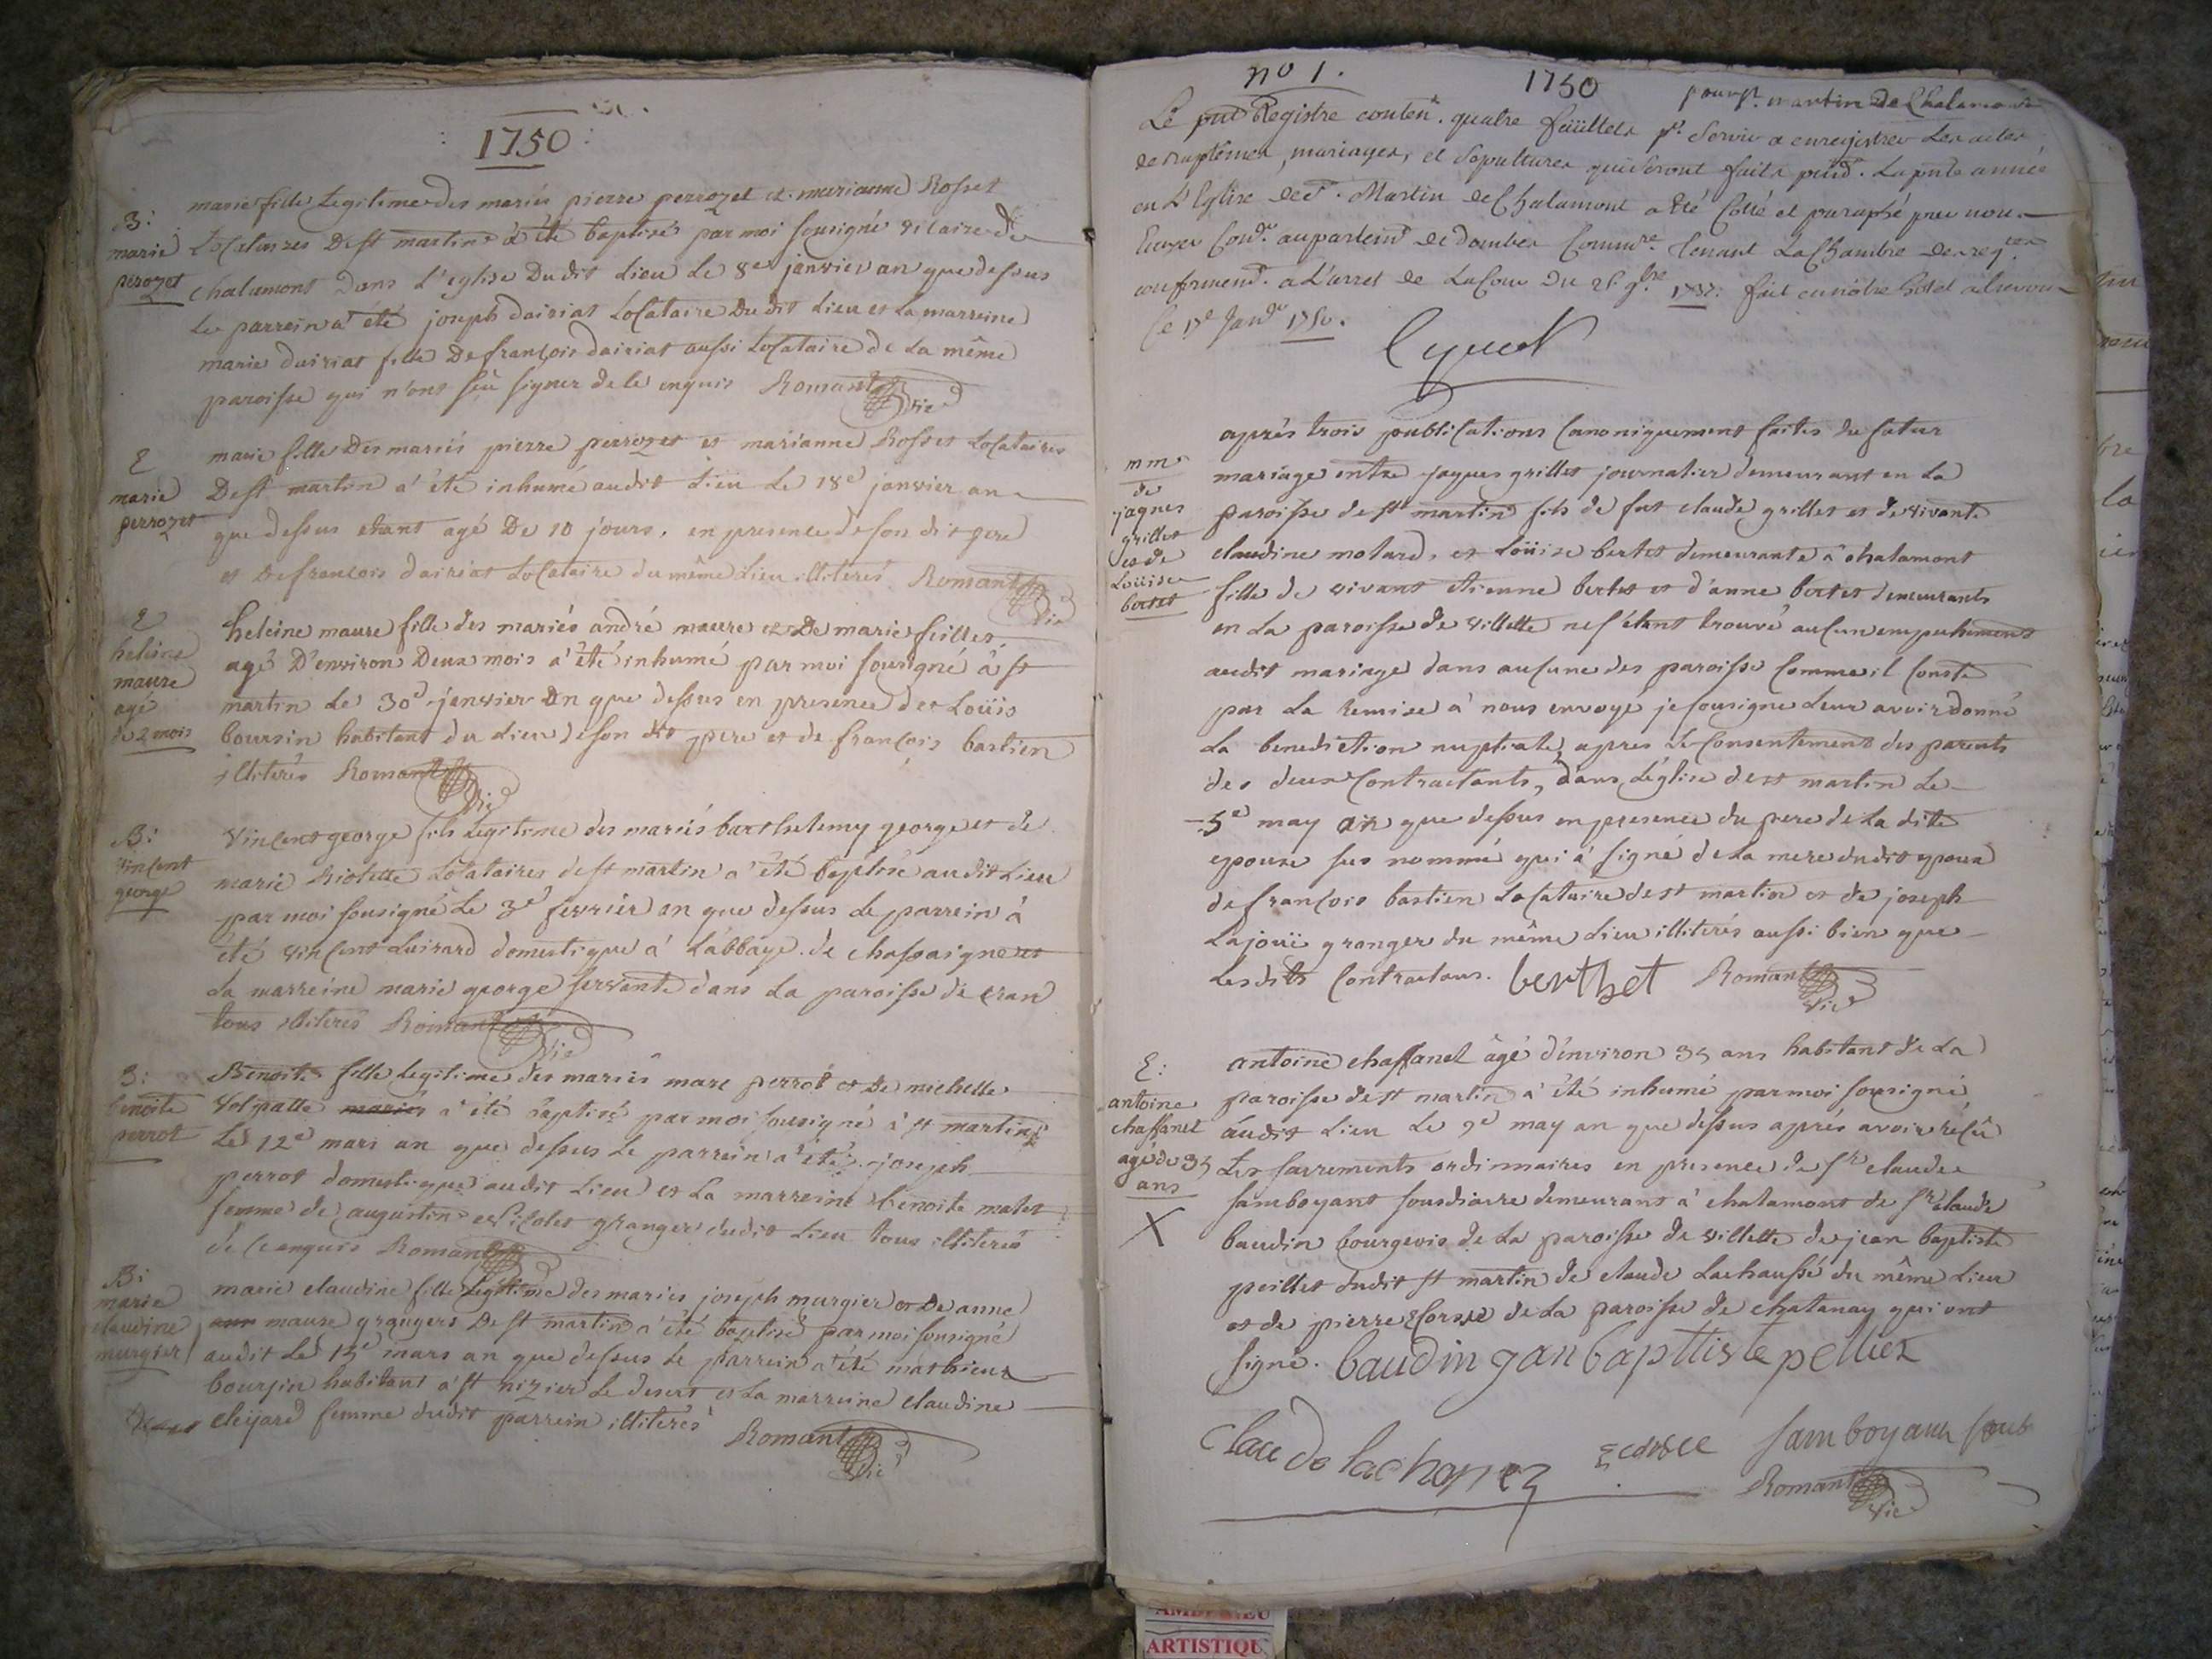 1750
marie fille Legitime des mariés pierre perrozet et marianne Rosset
B:
marie
perozet
Locataires De st martin a été baptisée par moi sousigné vicaire de
chalamont dans l'eglise Dudit Lieu Le 8e janvier an que dessus
Le parrein a été joseph dairiat Locataire Dudit Lieu et La marreine
marie dairiat fille De françois dairiat aussi Locataire de La même
paroisse qui n'ont sçû signer de ce enquis Romant vic
E
marie
perrozet
marie fille Des mariés pierre perrozet et marianne Rosset Locataires
De st martin a été inhumé audit Lieu Le 18e janvier an
que dessus étant agé De 10 jours, en presence de son dit pere
et De françois dairiat Locataire du même Lieu illiterés Romant vic
E
heleine
maure
agé
de 2 mois
heleine maure fille des mariés andré maure et De marie feilles
agé D'environ Deux mois a été inhumé par moi sousigné à st
martin Le 30e janvier an que dessus en presence de Loüis
boursin habitant du Lieu de son dit pere et de françois bastien
illiterés Romant vic
B:
vincent
george
vincent george fils Legitime des mariés barthelemy george et de
marie Riolette Locataires de st martin a été baptisé audit Lieu
par moi sousigné Le 3e fevrier an que dessus Le parrein a
été vincent Luisard domestique a L'abbaye de chassaigne et
La marreine marie george servante dans La paroisse de cran
tous illiterés Romant vic
B:
benoite
perrot
Benoite fille Legitime des mariés marc perrot et De michelle
Volpatte mariés a été baptisé par moi sousigné à st martin
Le 12e mars an que dessus Le parrein a été joseph
perrot domestique audit Lieu et La marreine benoite matet
femme de augustin granger dudit Lieu tous illiterés
de ce enquis Romant vic
B:
marie
claudine
murgier
marie claudine fille Legitime des mariés joseph murgier et De anne
maure grangers De st martin a été baptisé par moi sousigné
audit Le 15e mars an que dessus Le parrein a été mathieu
boursin habitant a st nizier Le desert et La marreine claudine
cleyard femme dudit parrein illiterés Romant vic
no 1. 1750 pour st. martin de Chalamont
Le pnt Registre conten. quatre feüillets pr. servir a enregistrer Les actes
de Baptêmes, mariages, et sepultures qui seront faits pend. La pnte année
en L'Eglise de st. Martin de Chalamont a été Cotté et paraphé par nou
Ecuyer Conr. au parlemt de dombes Commre. tenant La Chambre des reqtes
conformemt. a L'arret de La Cour du 26 9bre 1737: fait en nôtre hôtel a trevoux
Ce 17e Janr 1750.
mme
de
jaques
grillet
et de
Loüise
bertet
aprés trois publications canoniquement faites du futur
mariage entre jaques grillet journalier demeurant en La
paroisse de st martin fils de fut claude grillet et de vivante
claudine molard, et Loüise bertet demeurante à chalamont
fille de vivant etienne bertet et d'anne bertet demeurants
en La paroisse de villette ne s'étant trouvé aucun empechement
audit mariage dans aucune des paroisse comme il conste
par La remise à nous envoyé je sousigne Leur avoir donné
La benediction nuptiale, apres Le Consentement des parents
des deux Contractants, dans L'église de st martin Le
5e may an que dessus en presence du pere de La dite
epouse sus nommé qui a signé de La mere dudit epoux
de françois bastien Locataire de st martin et de joseph
Lajouë granger du même Lieu illiterés aussi bien que
Lesdits Contractans. berthet Romant vic
E:
antoine
chaffanet
agé de 35
ans
X
antoine chaffanet âgé d'environ 35 ans habitant de La
paroisse de st martin a été inhumé par moi sousigné
audit Lieu Le 9e may an que dessus aprés avoir réçû
Les sacrements ordinnaires en presence de sr claude
samboyant sousdiacre demeurant à chalamont de sr claude
baudin bourgeois de La paroisse de villette de jean baptiste
peillet dudit st martin de claude Lachaussé du même Lieu
et de pierre Ecorcé de La paroisse de chatenay qui ont
signé. baudin jan bapttiste pelliez
samboyant sous
Romant vic
AMBERIEU
ARTISTIQU